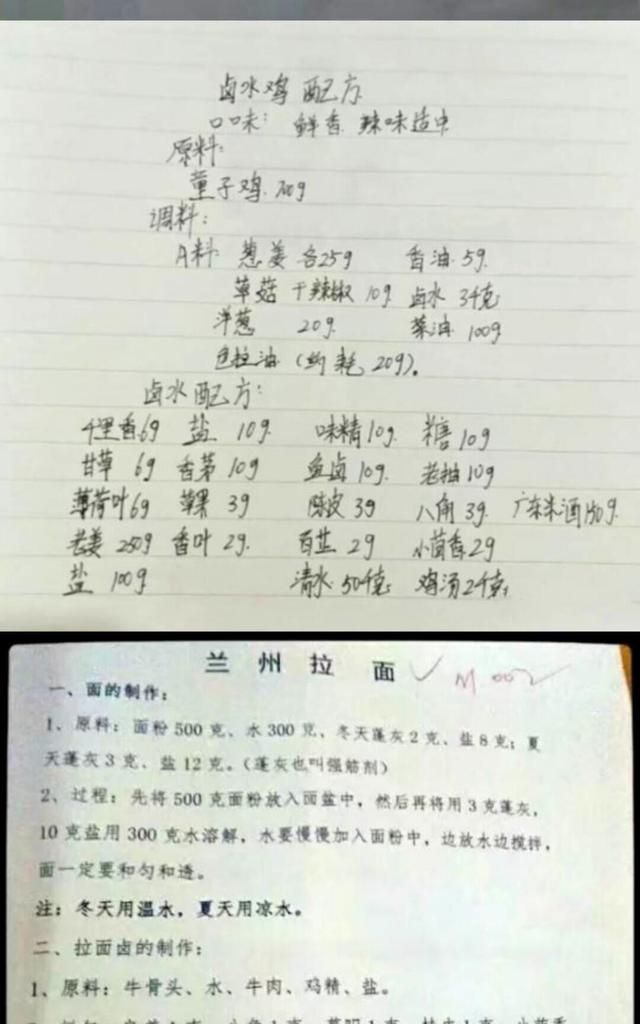 卤水鸡配方
口味: 鲜香 辣味适中
原料:
童子鸡 700g
调料:
A料 葱姜 各25g 香油 5g
草菇 干辣椒 10g 卤水 3千克
洋葱 20g 菜油 100g
色拉油 (约耗 20g)。
卤水配方:
千里香6g 盐 10g 味精10g 糖10g
甘草 6g 香茅10g 鱼卤10g 老抽10g
薄荷叶6g 草果 3g 陈皮 3g 八角 3g 广东米酒150g
老姜 250g 香叶 2g 百芷 2g 小茴香2g
盐 100g 清水 50千克 鸡汤2千克
兰州拉面
一、面的制作:
1、原料: 面粉 500 克、水 300 克、冬天蓬灰 2 克、盐 8 克; 夏
天蓬灰 3 克、盐 12 克。(蓬灰也叫强筋剂)
2、过程: 先将 500 克面粉放入面盆中, 然后再将用 3 克蓬灰,
10 克盐用 300 克水溶解, 水要慢慢加入面粉中, 边放水边搅拌,
面一定要和匀和透。
注: 冬天用温水, 夏天用凉水。
二、拉面卤的制作:
1、原料: 牛骨头、水、牛肉、鸡精、盐。